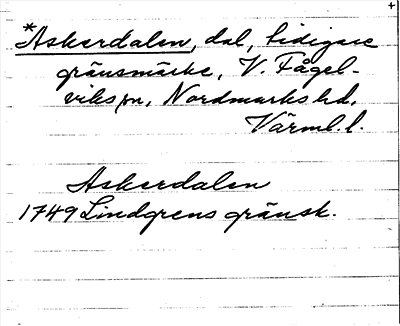 *Askerdalen, dal, tidigare
gränsmärke, V. Fågel-
viks sn, Nordmarks hd,
Värml. l.
Askerdalen
1749 Lindgrens gränsk.